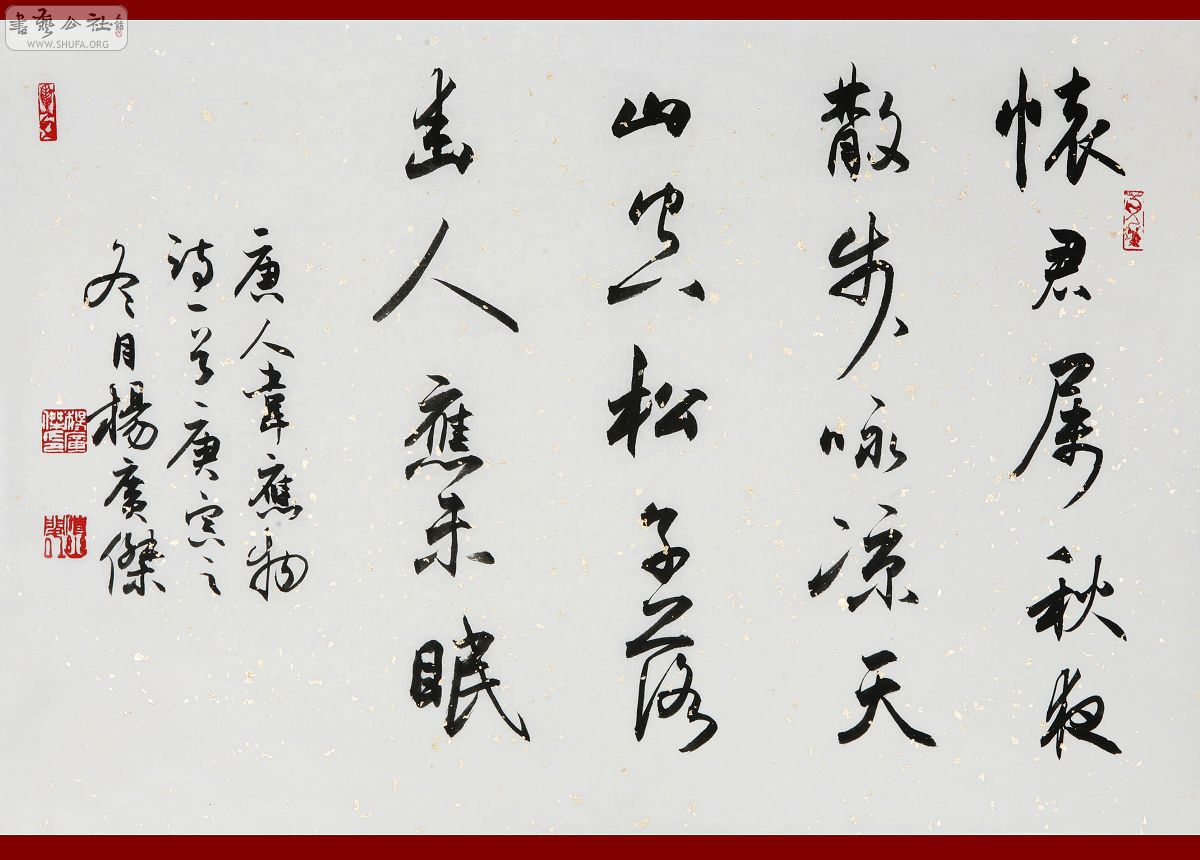 懷君属秋夜
散步咏凉天
山空松子落
幽人應未眠
唐人韋應物
诗一首庚寅之
冬月楊廣傑
書藝公社
WWW.SHUFA.ORG